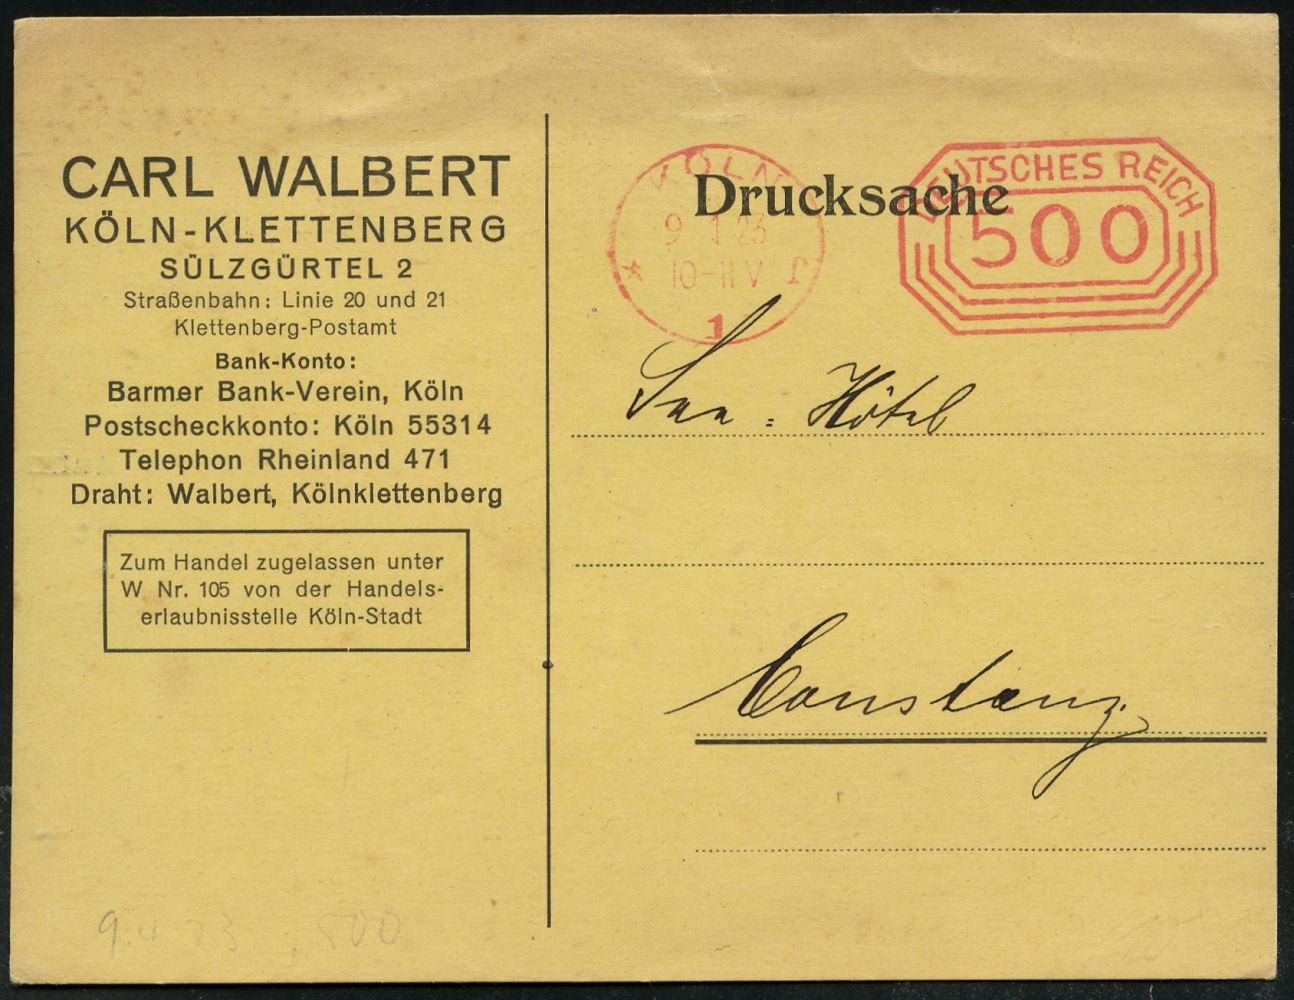 CARL WALBERT
KÖLN-KLETTENBERG
SÜLZGÜRTEL 2
Straßenbahn: Linie 20 und 21
Klettenberg-Postamt
Bank-Konto:
Barmer Bank-Verein, Köln
Postscheckkonto: Köln 55314
Telephon Rheinland 471
Draht: Walbert, Kölnklettenberg
Zum Handel zugelassen unter
W Nr. 105 von der Handels-
erlaubnisstelle Köln-Stadt
Drucksache
KÖLN
23
10-11 V
1
DEUTSCHES REICH
500
See = Hôtel
Constanz.
500